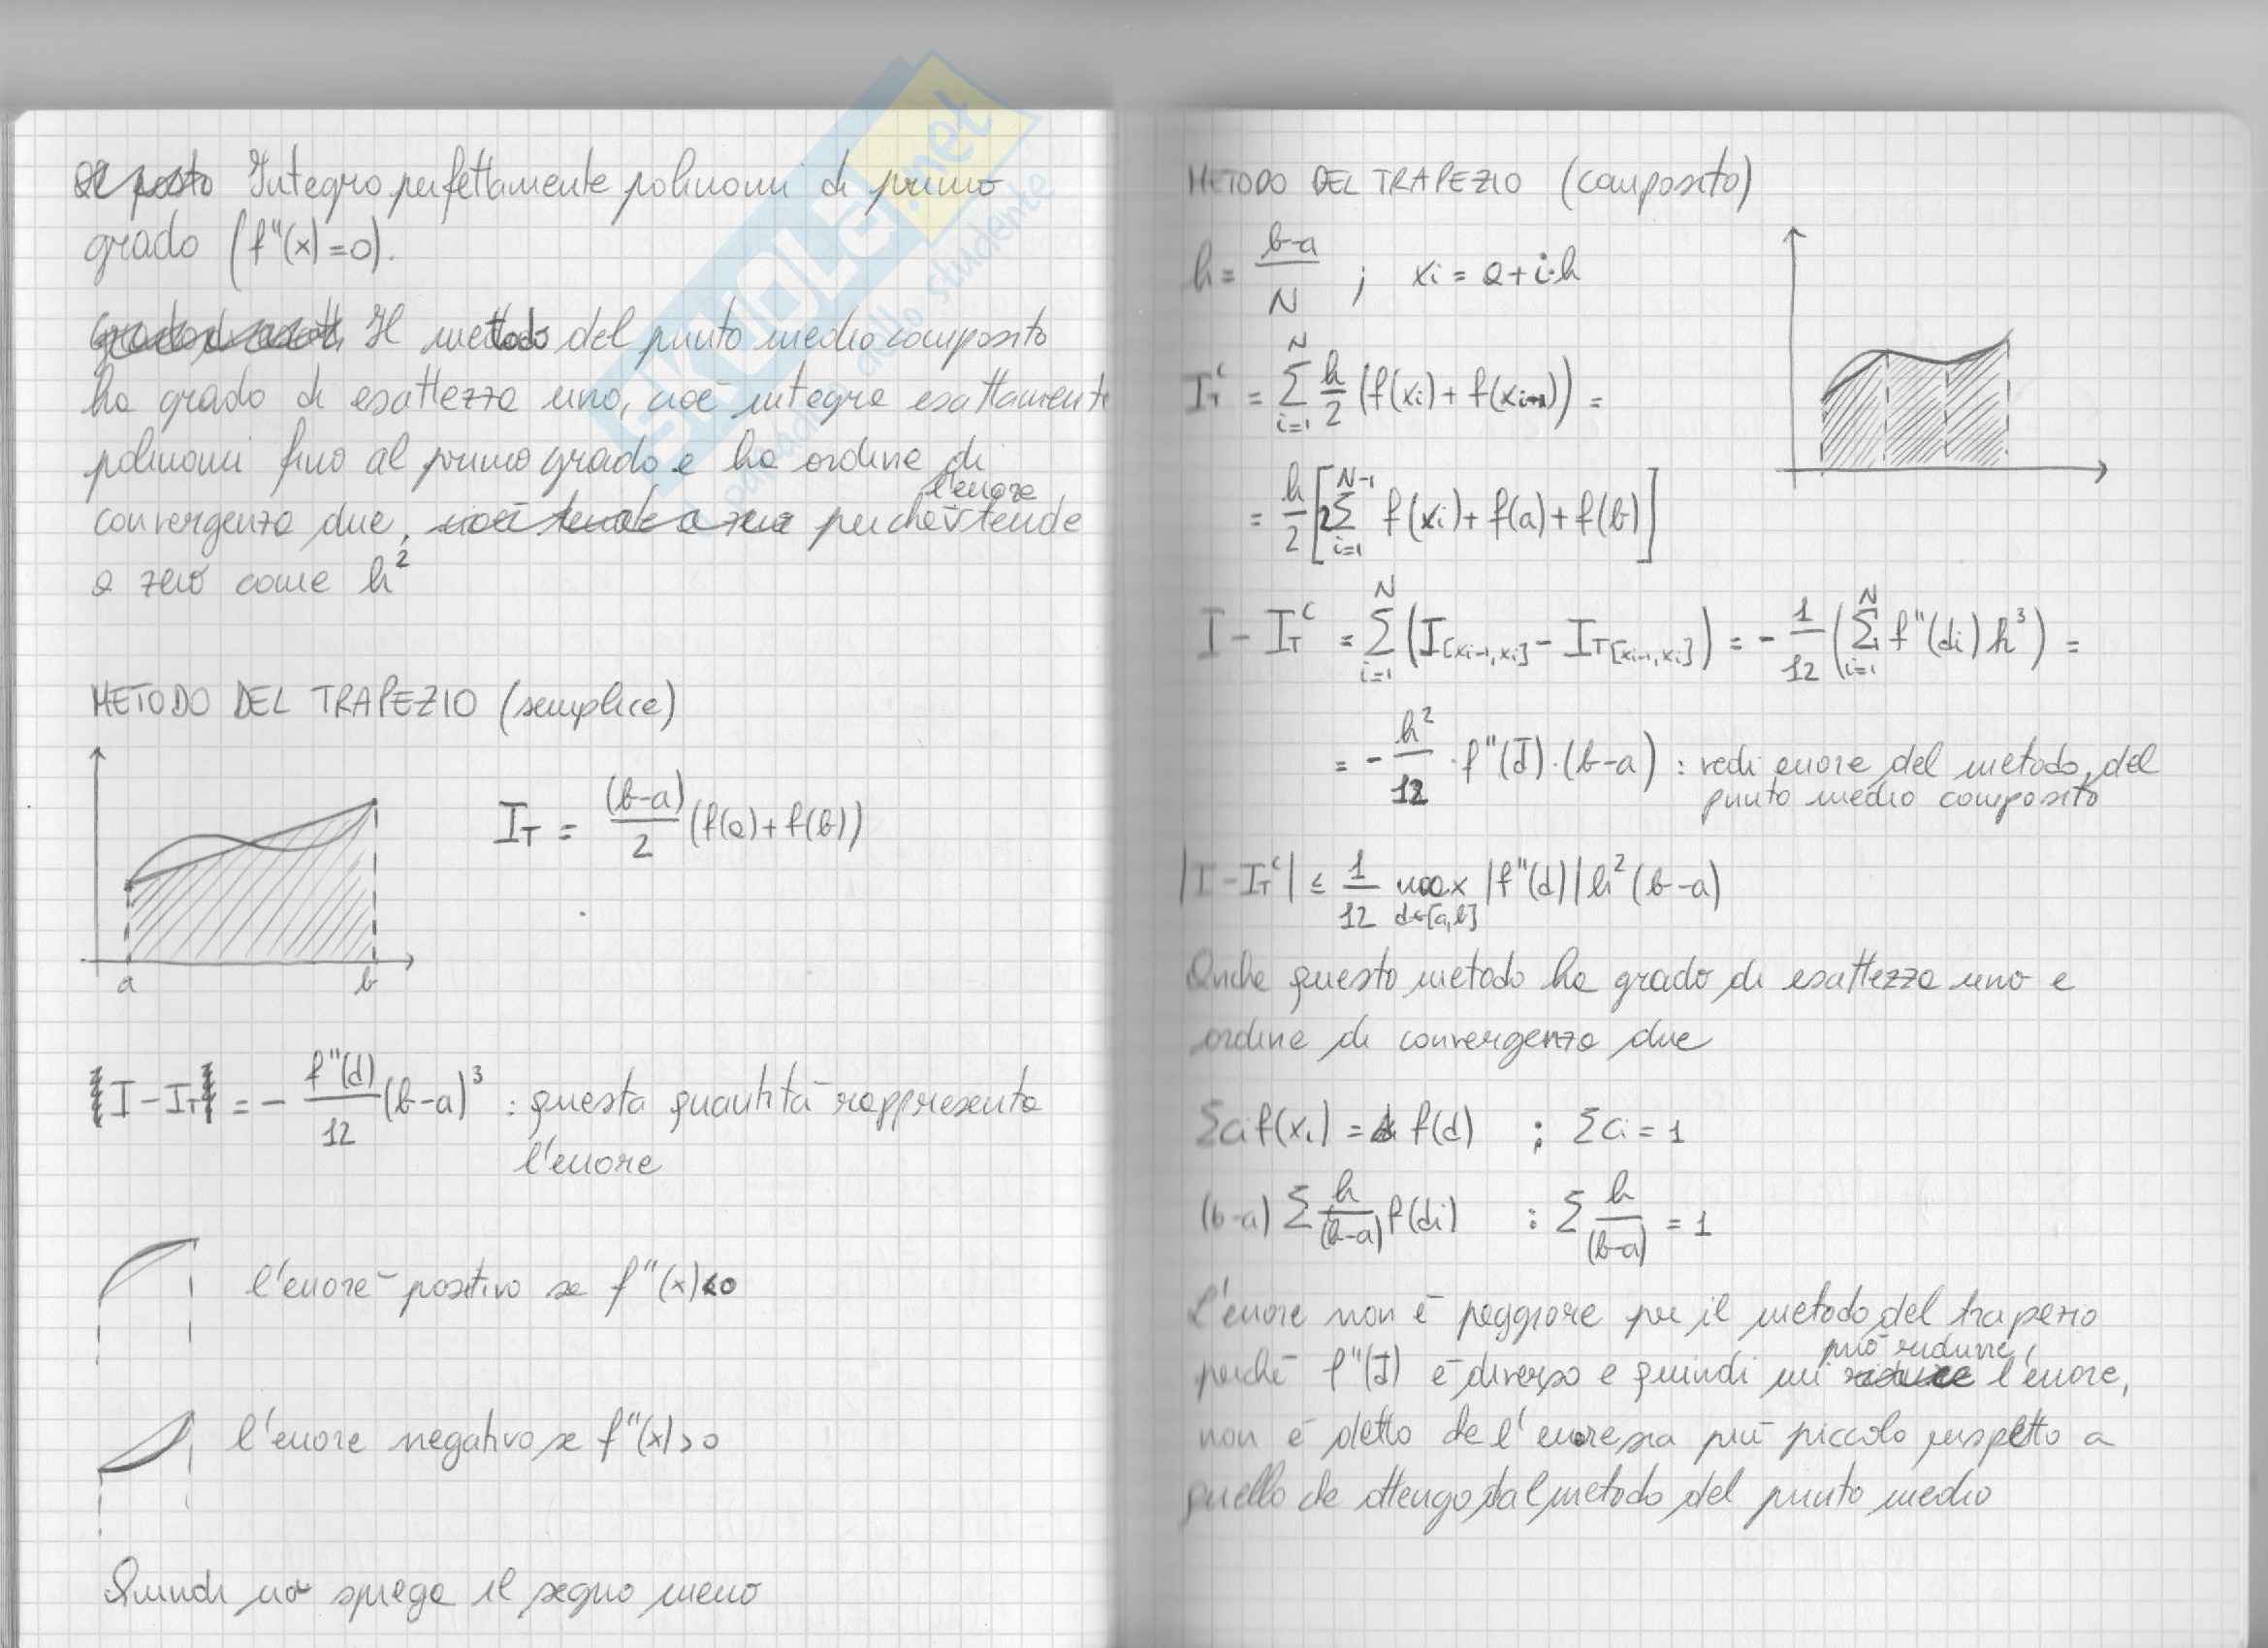 Integro perfettamente polinomi di primo
grado (f''(x)=0).
Il metodo del punto medio composito
ha grado di esattezza uno, cioè integra esattamente
polinomi fino al primo grado e ha ordine di
convergenza due, perché l'errore tende
a zero come h²
METODO DEL TRAPEZIO (semplice)
I_T = (b-a)/2 (f(a)+f(b))
a b
I-I_T = - f''(d)/12 (b-a)³ : questa quantità rappresenta
l'errore
l'errore positivo se f''(x)<0
l'errore negativo se f''(x)>0
Quindi spiega il segno meno
METODO DEL TRAPEZIO (composito)
h = (b-a)/N ; xi = a+i·h
I_T^c = Σ_{i=1}^{N} h/2 (f(xi)+f(xi+1)) =
= h/2 [2Σ_{i=1}^{N-1} f(xi)+f(a)+f(b)]
I-I_T^c = Σ_{i=1}^{N} (I_[xi-1,xi] - I_T[xi-1,xi]) = - 1/12 (Σ_{i=1}^{N} f''(di) h³) =
= - h²/12 · f''(d̄)·(b-a) : vedi errore del metodo del
punto medio composito
|I-I_T^c| ≤ 1/12 max_{d∈[a,b]} |f''(d)| h²(b-a)
Anche questo metodo ha grado di esattezza uno e
ordine di convergenza due
Σci f(xi) = f(d) ; Σci = 1
(b-a) Σ h/(b-a) f(di) : Σ h/(b-a) = 1
L'errore non è peggiore per il metodo del trapezio
perché f''(d̄) è diverso e quindi mi può ridurre l'errore,
non è detto che l'errore sia più piccolo rispetto a
quello che ottengo dal metodo del punto medio
SKUOLA.net
paradiso dello studente